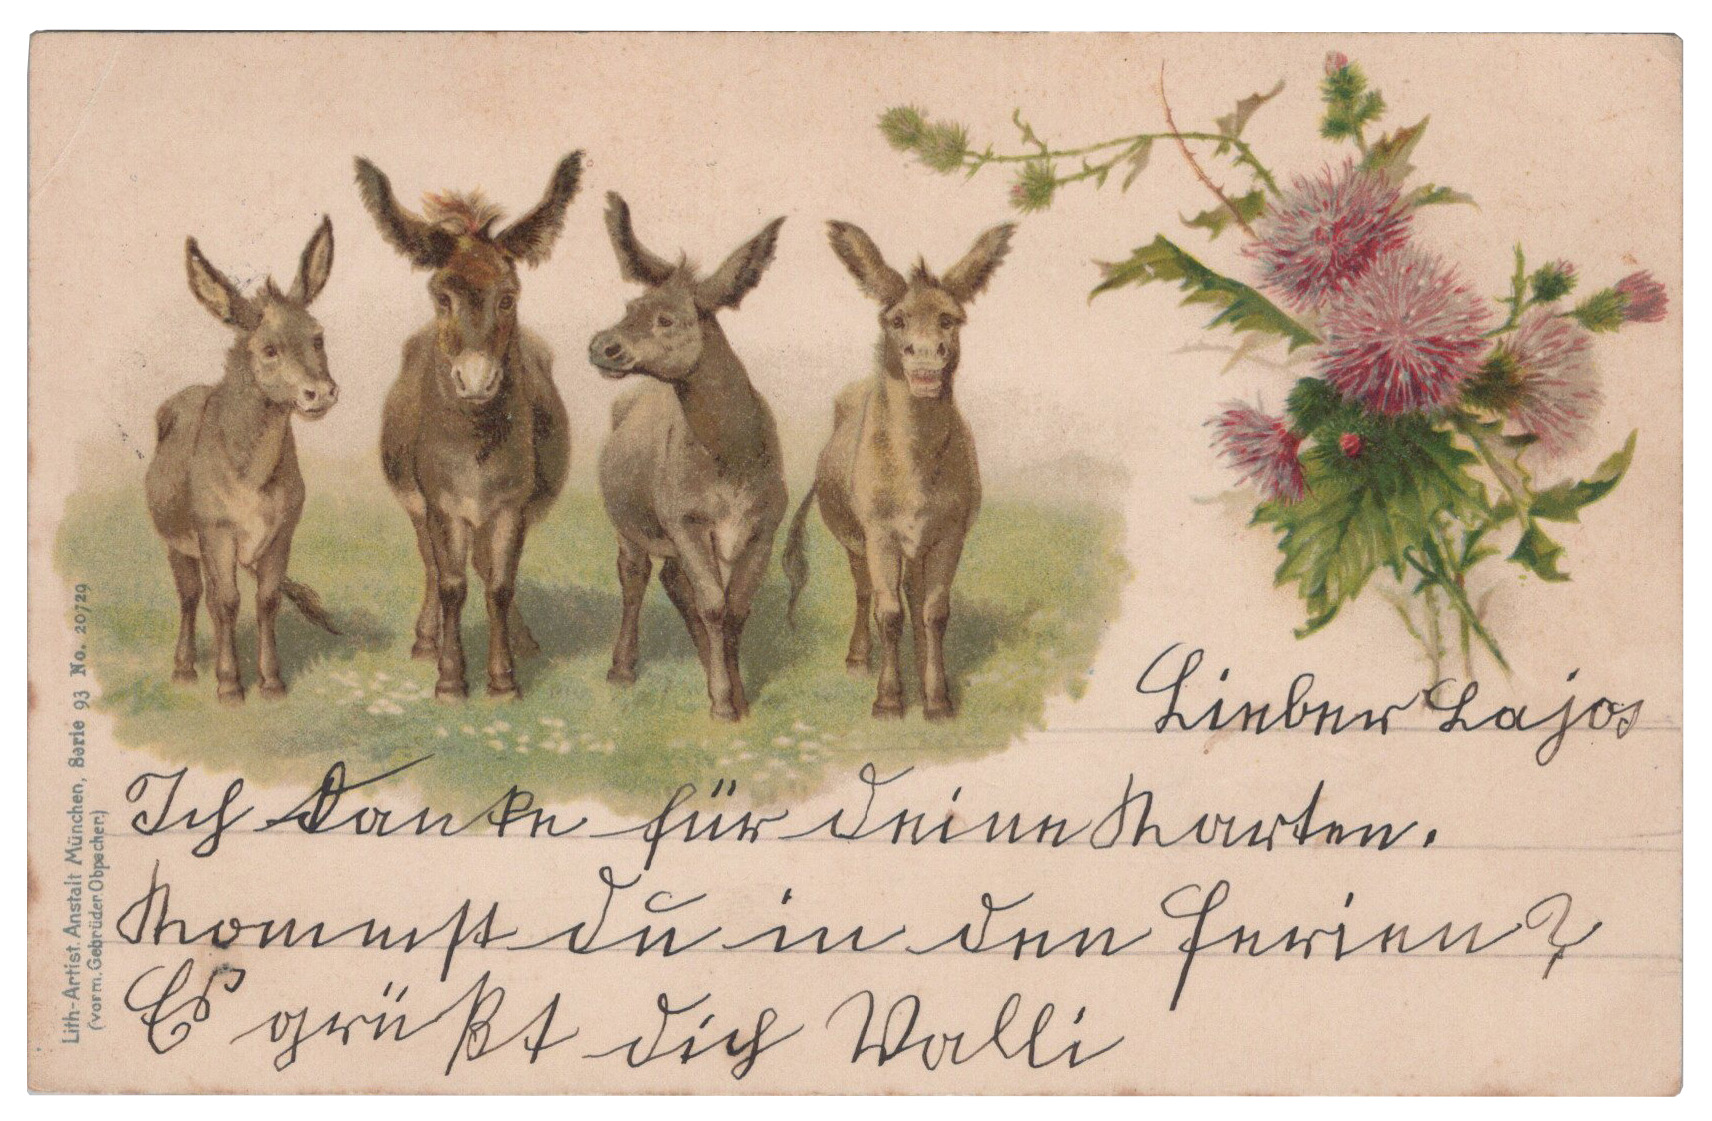 Lieber Lajos
Ich danke für deine Karten.
Kommst du in den Ferien?
Es grüßt dich Valli
Lith.-Artist. Anstalt München, Serie 93 No. 20729
(vorm. Gebrüder Obpacher)